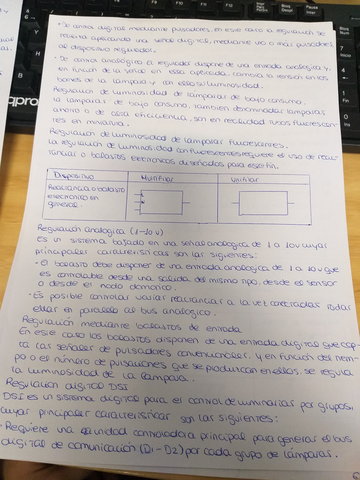 • Se control digital mediante pulsadores, en este caso la regulación se
realiza aplicando una señal digital, mediante uno o más pulsadores
al dispositivo regulador.
• Se control analógica el regulador dispone de una entrada analógica y,
en función de la señal en esta aplicada, controla la tensión en los
bones de la lámpara y con ello su luminosidad.
Regulación de luminosidad de lámparas de bajo consumo.
la lámparas de bajo consumo, también denominadas lámparas
ahorro o de alta eficiencia, son en realidad tubos fluorescen
tes en miniatura.
Regulación de luminosidad de lámparas fluorescentes.
la regulación de luminosidad con fluorescentes requiere el uso de reac
tancias o balastos electrónicos diseñados para ese fin.
Dispositivo
Multifilar
Unifilar
Reactancia o balasto
electrónico en
general
Regulación analógica (1-10 v)
Es un sistema basado en una señal analógica de 1 a 10v cuyas
principales características son las siguientes:
• El balasto debe disponer de una entrada analógica de 1 a 10v que
es controlable desde una salida del mismo tipo, desde el sensor
o desde el nodo domótico.
• Es posible controlar varias reactancias a la vez conectadas todas
ellas en paralelo al bus analógico.
Regulación mediante balastos de entrada
En este caso los balastos disponen de una entrada digital que cap
ta las señales de pulsadores convencionales, y en función del tiem
po o el número de pulsaciones que se produzcan en ellos, se regula
la luminosidad de la lámpara.
Regulación digital DSI
DSI es un sistema digital para el control de luminarias por grupos,
cuyas principales características son las siguientes:
- Requiere una unidad controladora principal para generar el bus
digital de comunicación (D1-D2) por cada grupo de lámparas.